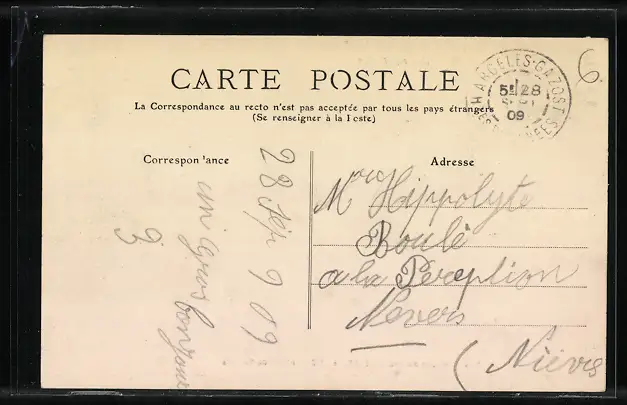 6
CARTE POSTALE
La Correspondance au recto n'est pas acceptée par tous les pays étrangers
(Se renseigner à la Poste)
ARGELES-GAZOST
5 28
09
Correspondance
Adresse
28 Sep 9 09
un gros bonjour
Hippolyte
Boulé
a la Perception
Nevers
(Nièvre